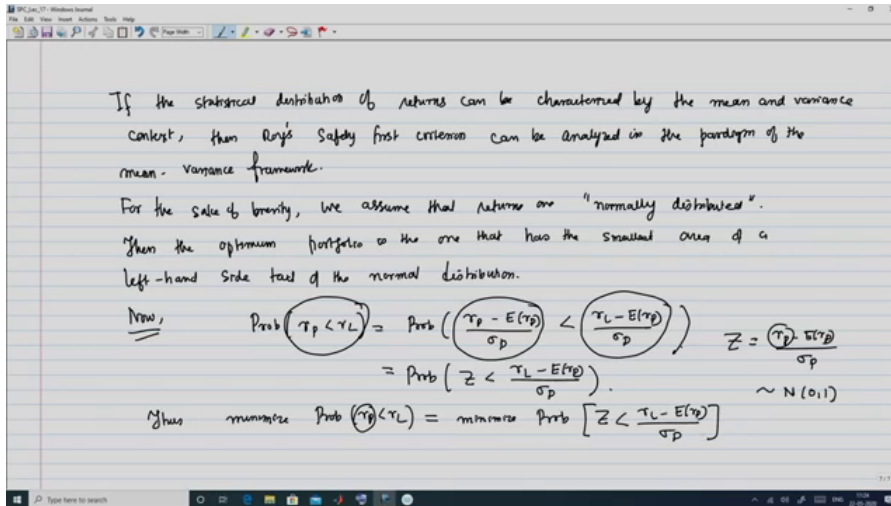 SPC_Lec_17 - Windows Journal
File Edit View Insert Actions Tools Help
Page Width
If the statistical distribution of returns can be characterized by the mean and variance
context, then Roy's Safety first criterion can be analyzed in the paradigm of the
mean - variance framework.
For the sake of brevity, we assume that returns are "normally distributed".
Then the optimum portfolio is the one that has the smallest area of a
left-hand side tail of the normal distribution.
Now, Prob(r_p < r_L) = Prob((r_p - E(r_p))/σ_p < (r_L - E(r_p))/σ_p) Z = (r_p - E(r_p))/σ_p
= Prob(Z < (r_L - E(r_p))/σ_p). ~ N(0,1)
Thus minimize Prob(r_p < r_L) = minimize Prob[Z < (r_L - E(r_p))/σ_p]
7/7
Type here to search
ENG 11:24
22-05-2020